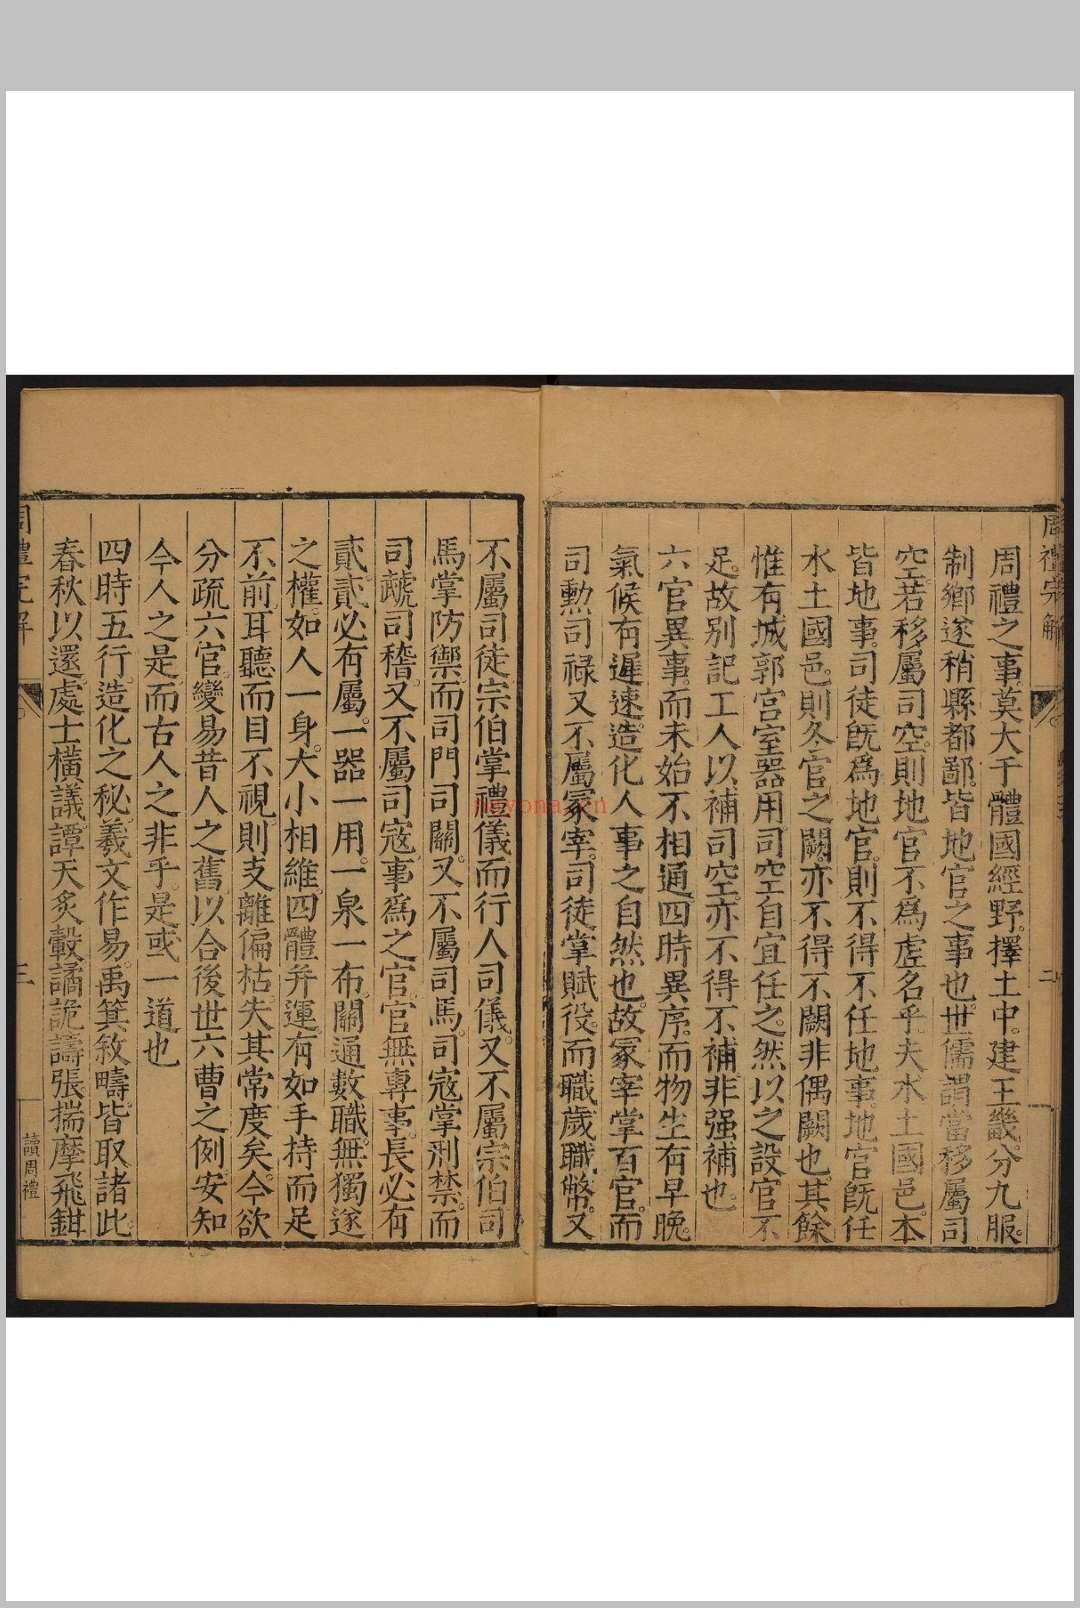 周禮完解
二
周禮之事莫大于體國經野。擇土中。建王畿。分九服。
制鄉遂稍縣都鄙。皆地官之事也。世儒謂當移屬司
空。若移屬司空。則地官不爲虛名乎。夫水土國邑。本
皆地事。司徒旣爲地官。則不得不任地事。地官旣任
水土國邑。則冬官之闕。亦不得不闕。非偶闕也。其餘
惟有城郭宮室器用。司空自宜任之。然以之設官不
足。故別記工人以補司空。亦不得不補。非强補也。
六官異事。而未始不相通。四時異序。而物生有早晚。
氣候有遲速。造化人事之自然也。故冢宰掌百官。而
司勲司祿又不屬冢宰。司徒掌賦役。而職歲職幣。又
不屬司徒。宗伯掌禮儀而行人司儀。又不屬宗伯。司
馬掌防禦。而司門司關。又不屬司馬。司寇掌刑禁。而
司虣司稽。又不屬司寇。事爲之官。官無專事。長必有
貳。貳必有屬。一器一用。一泉一布。關通數職。無獨遂
之權。如人一身。大小相維。四體幷運。有如手持而足
不前。耳聽而目不視。則支離偏枯。失其常度矣。今欲
分疏六官。變易昔人之舊。以合後世六曹之例。安知
今人之是。而古人之非乎。是或一道也
四時五行。造化之秘。羲文作易。禹箕敘疇。皆取諸此。
春秋以還。處士橫議。譚天炙轂。譎詭譸張。揣摩飛鉗
周禮完解
三
讀周禮